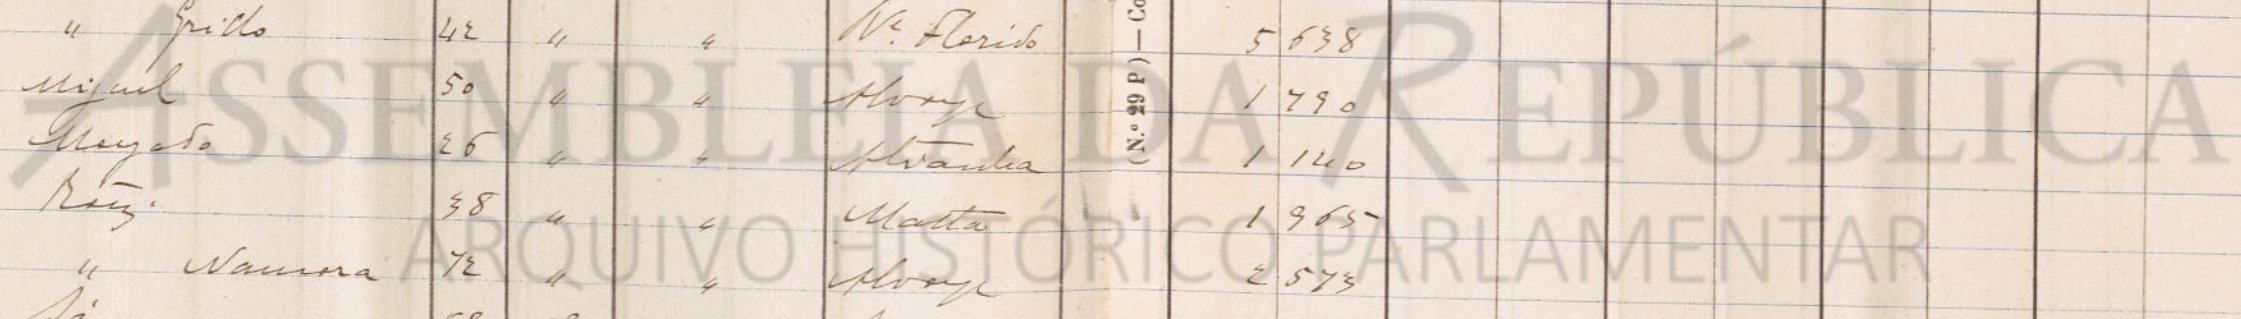 " Grillo 42 " " Vª. Florido 5 638
Miguel 50 " " Alvorge 1 790
Morgado 26 " " Ateanha 1 140
Roiz. 38 " " Matta 1 965
" Namora 72 " " Alvorge 2 573
Sá
(N.º 29 P) — Co
ASSEMBLEIA DA REPÚBLICA
ARQUIVO HISTÓRICO PARLAMENTAR